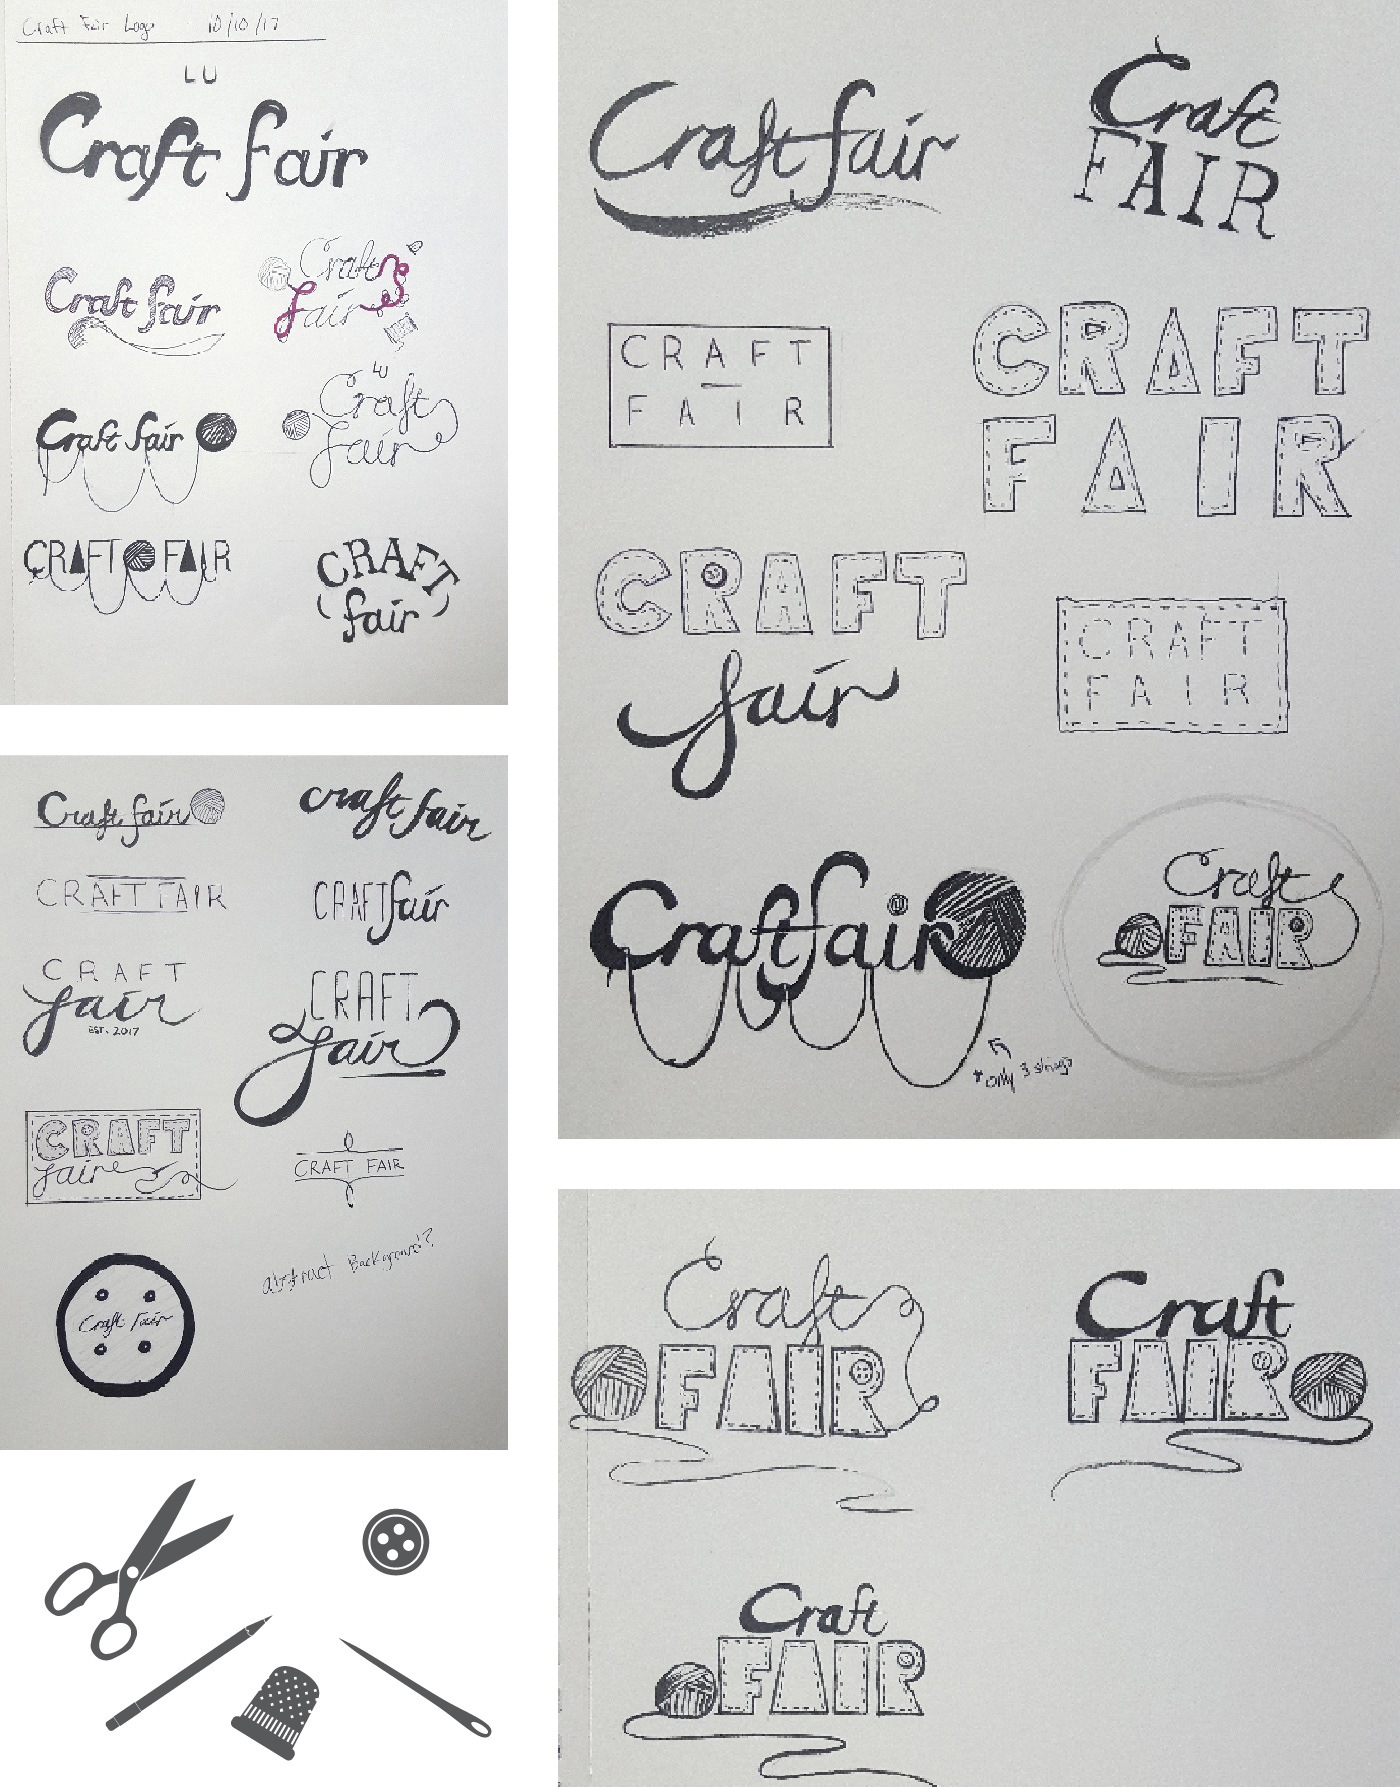 Craft Fair Logo 10/10/17
LU
Craft fair
Craft fair
Craft
fair
Craft fair
LU
Craft
fair
CRAFT FAIR
CRAFT
fair
Craft fair
craft fair
CRAFT FAIR
CRAFT fair
CRAFT
fair
EST. 2017
CRAFT
fair
CRAFT
faire
CRAFT FAIR
Craft Fair
abstract Background?
Craft fair
Craft
FAIR
CRAFT
FAIR
CRAFT
FAIR
CRAFT
fair
CRAFT
FAIR
Craft fair
* only 3 strings
Craft
FAIR
Craft
FAIR
Craft
FAIR
Craft
FAIR